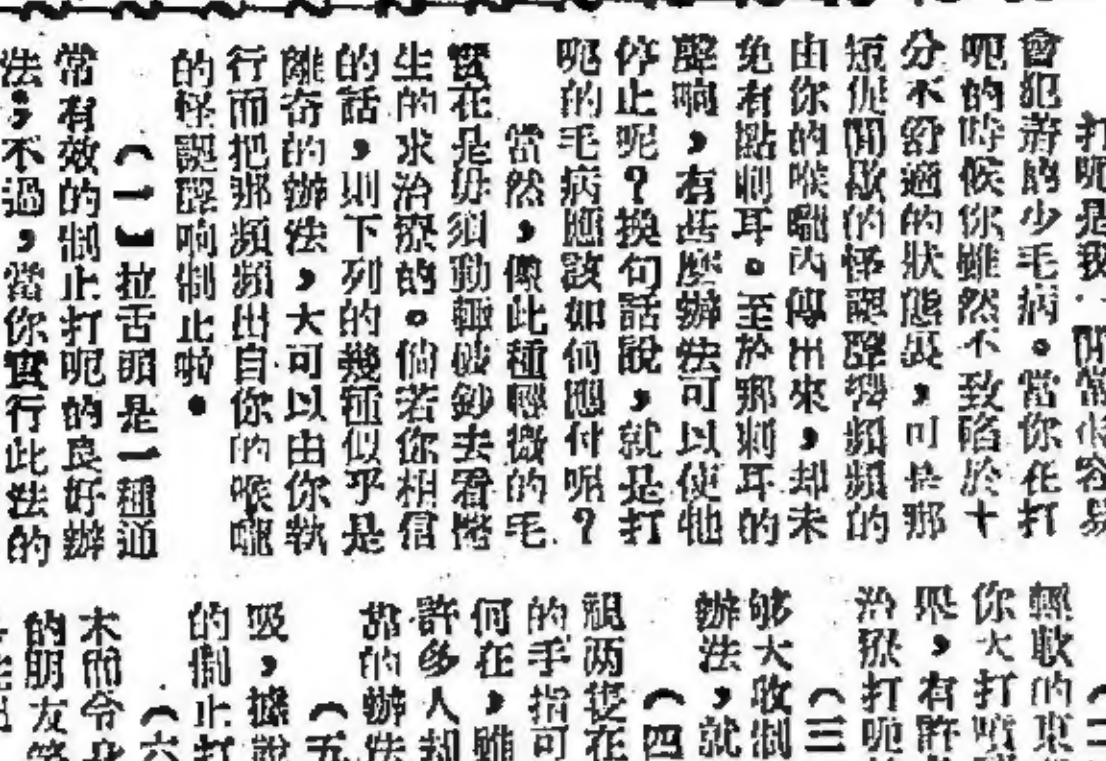 打呃是我們常常容易
會犯著的少毛病。當你在打
呃的時候你雖然不致陷於十
分不舒適的狀態裏,可是那
短促間歇的怪誕聲響頻頻的
由你的喉嚨內傳出來,却未
免有點刺耳。至於那刺耳的
聲响,有甚麼辦法可以使牠
停止呢?換句話說,就是打
呃的毛病應該如何應付呢?
當然,像此種輕微的毛
實在是毋須動輒破鈔去看醫
生的求治療的。倘若你相信
的話,則下列的幾種似乎是
離奇的辦法,大可以由你執
行而把那頻頻出自你的喉嚨
的怪誕聲响制止啦。
(一)拉舌頭是一種通
常有效的制止打呃的良好辦
法;不過,當你實行此法的
(二
輕軟的東
你大打噴
果,有許
治療打呃
(三
够大收制
辦法,就
(四
視兩隻在
的手指可
何在,雖
許多人却
當的辦法
(五
吸,據說
的制止打
(六
末而令身
的朋友